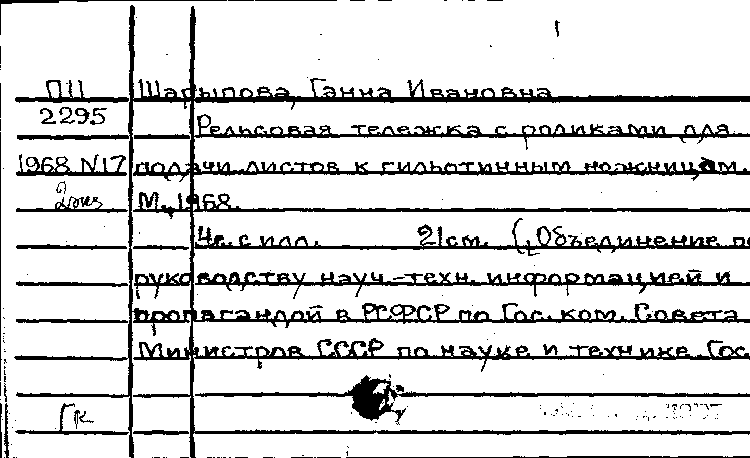 П11 Шарыпова, Ганна Ивановна
2295 Рельсовая тележка с роликами для
1968 N17 подачи листов к гильотинным ножницам.
2экз М., 1968.
4с. с илл. 21см. (Объединение по
руководству науч.-техн. информацией и
пропагандой в РСФСР по Гос. ком. Совета
Министров СССР по науке и технике. Гос.
Гк